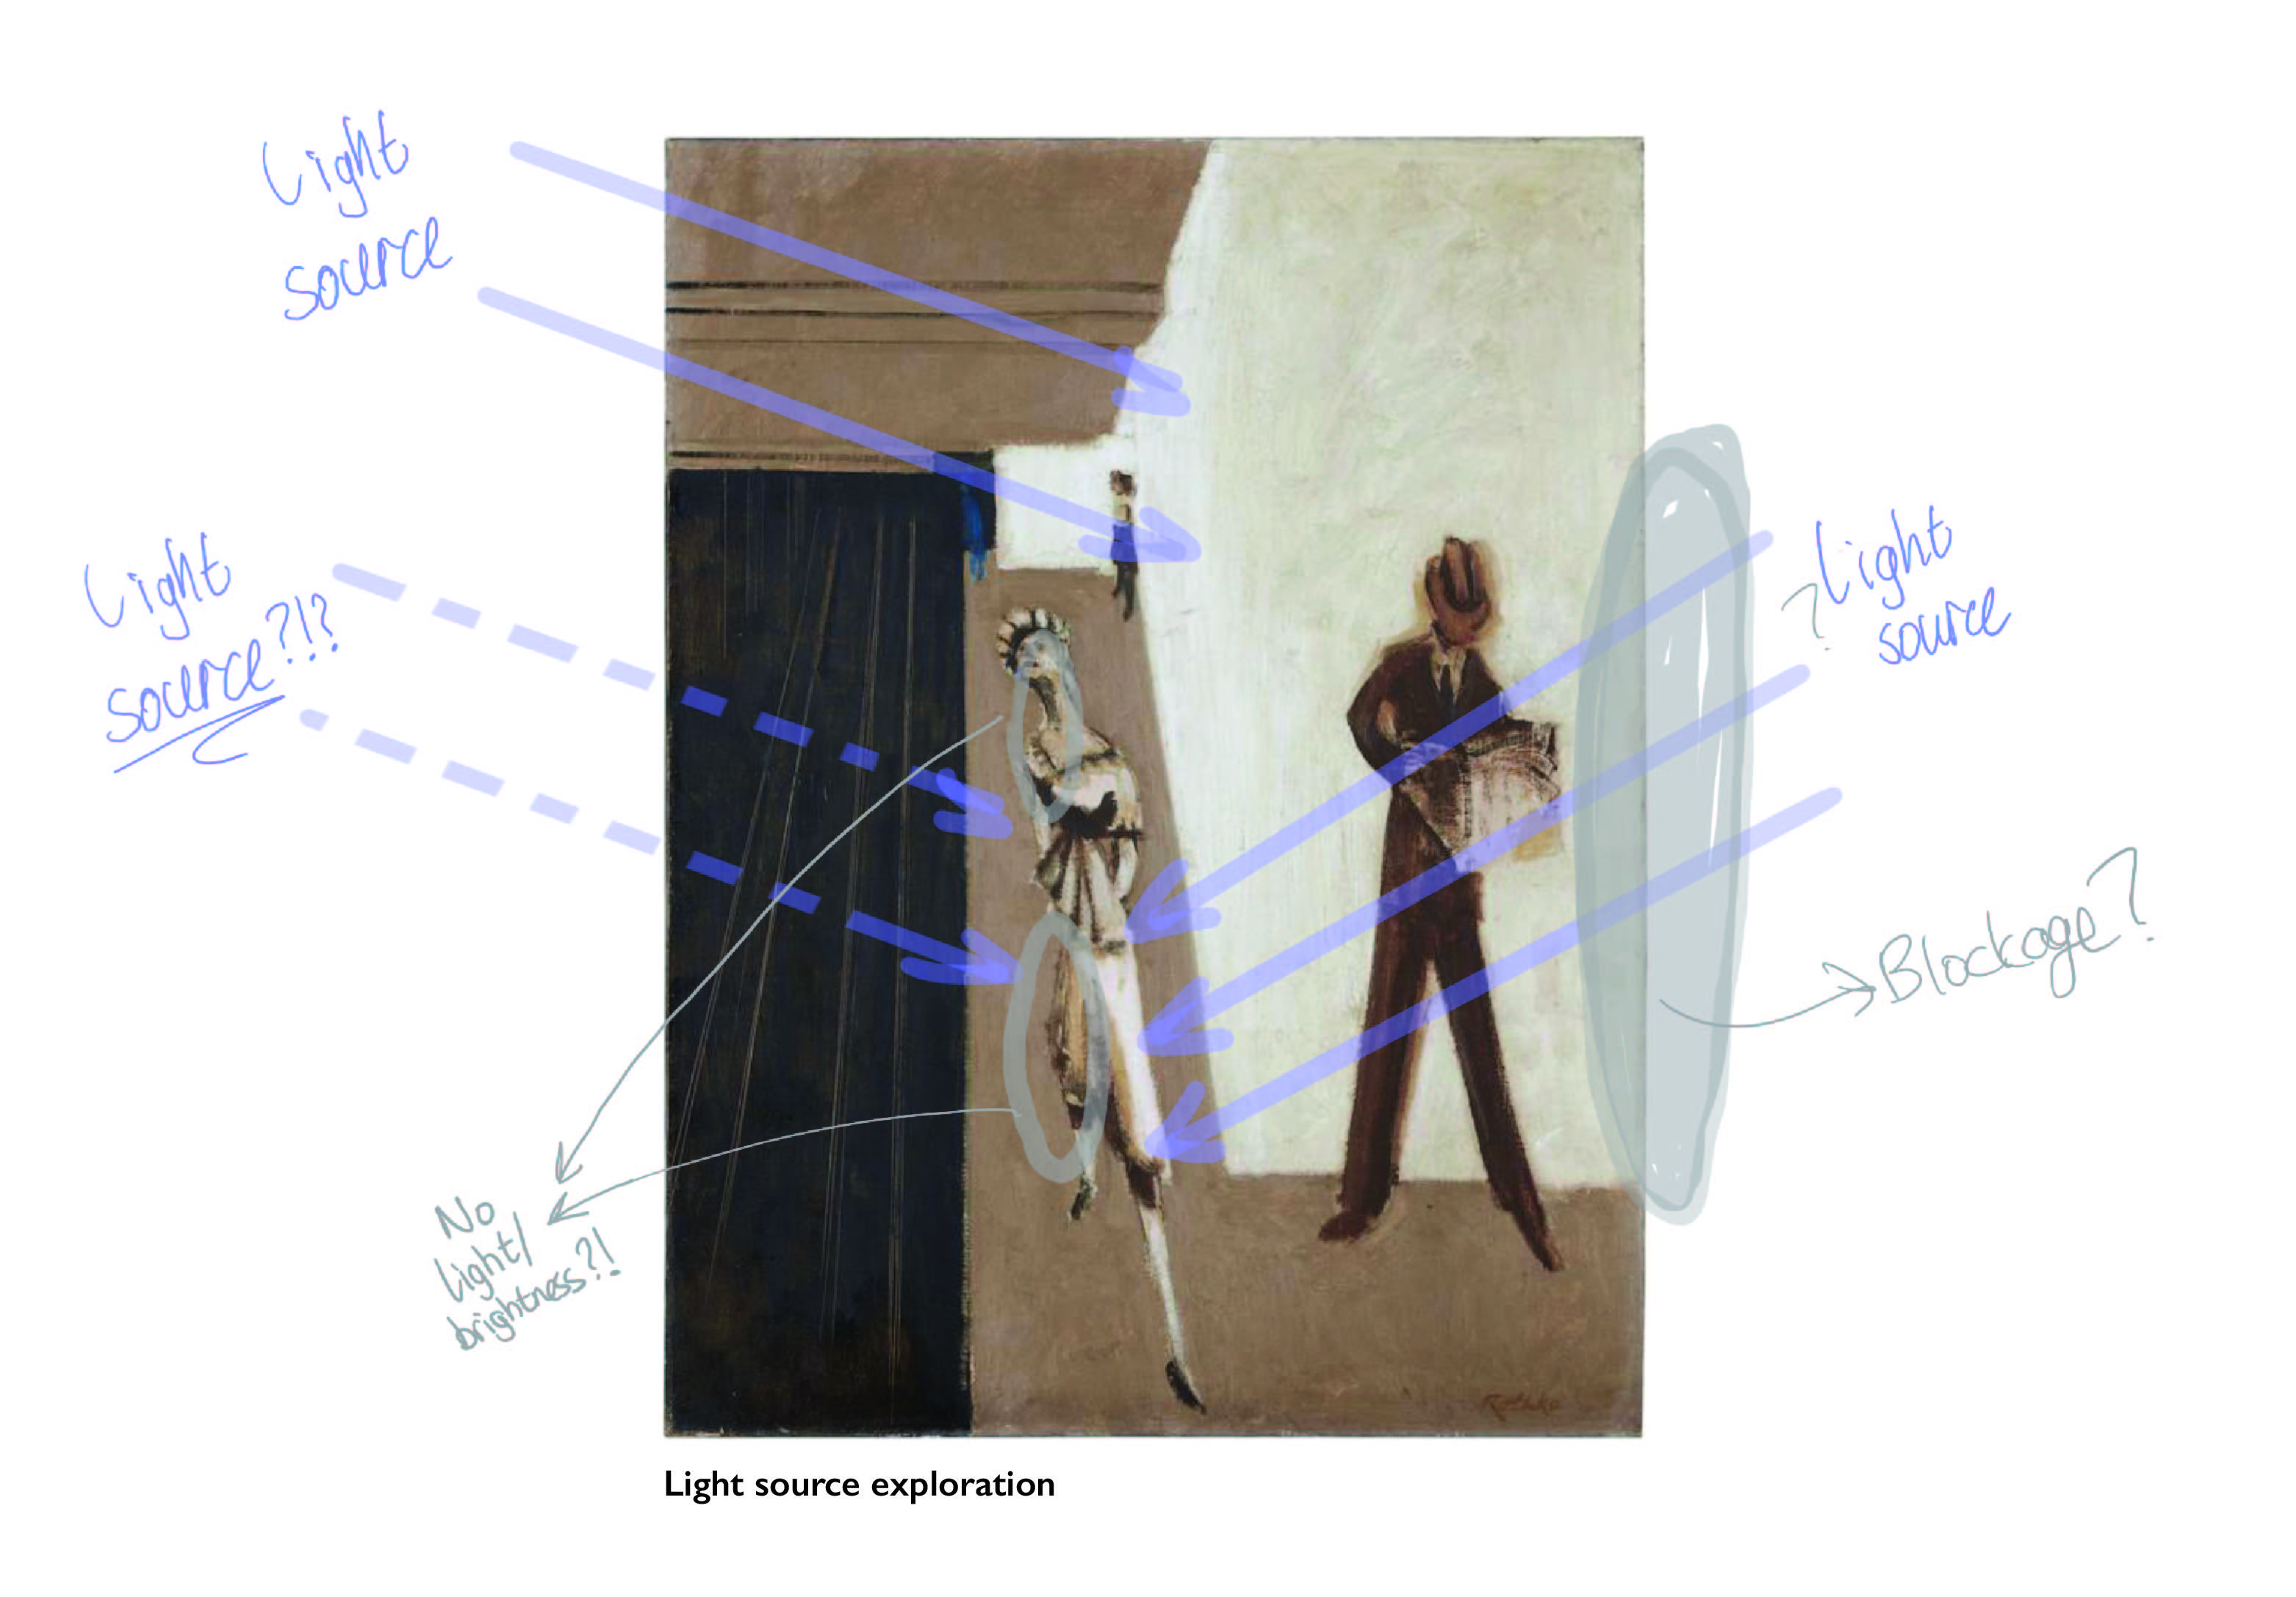 Light
source
Light
source?!?
? Light
source
Blockage?
No
light/
brightness?!
Rothko
Light source exploration